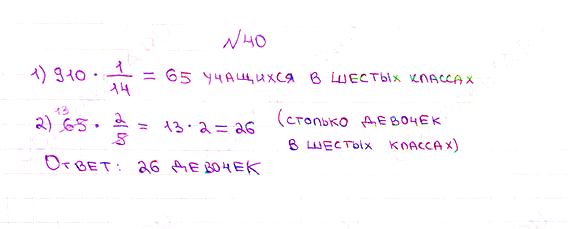 №40
1) 910 · 1/14 = 65 учащихся в шестых классах
2) 65 · 2/5 = 13 · 2 = 26 (столько девочек
13
в шестых классах)
Ответ: 26 девочек